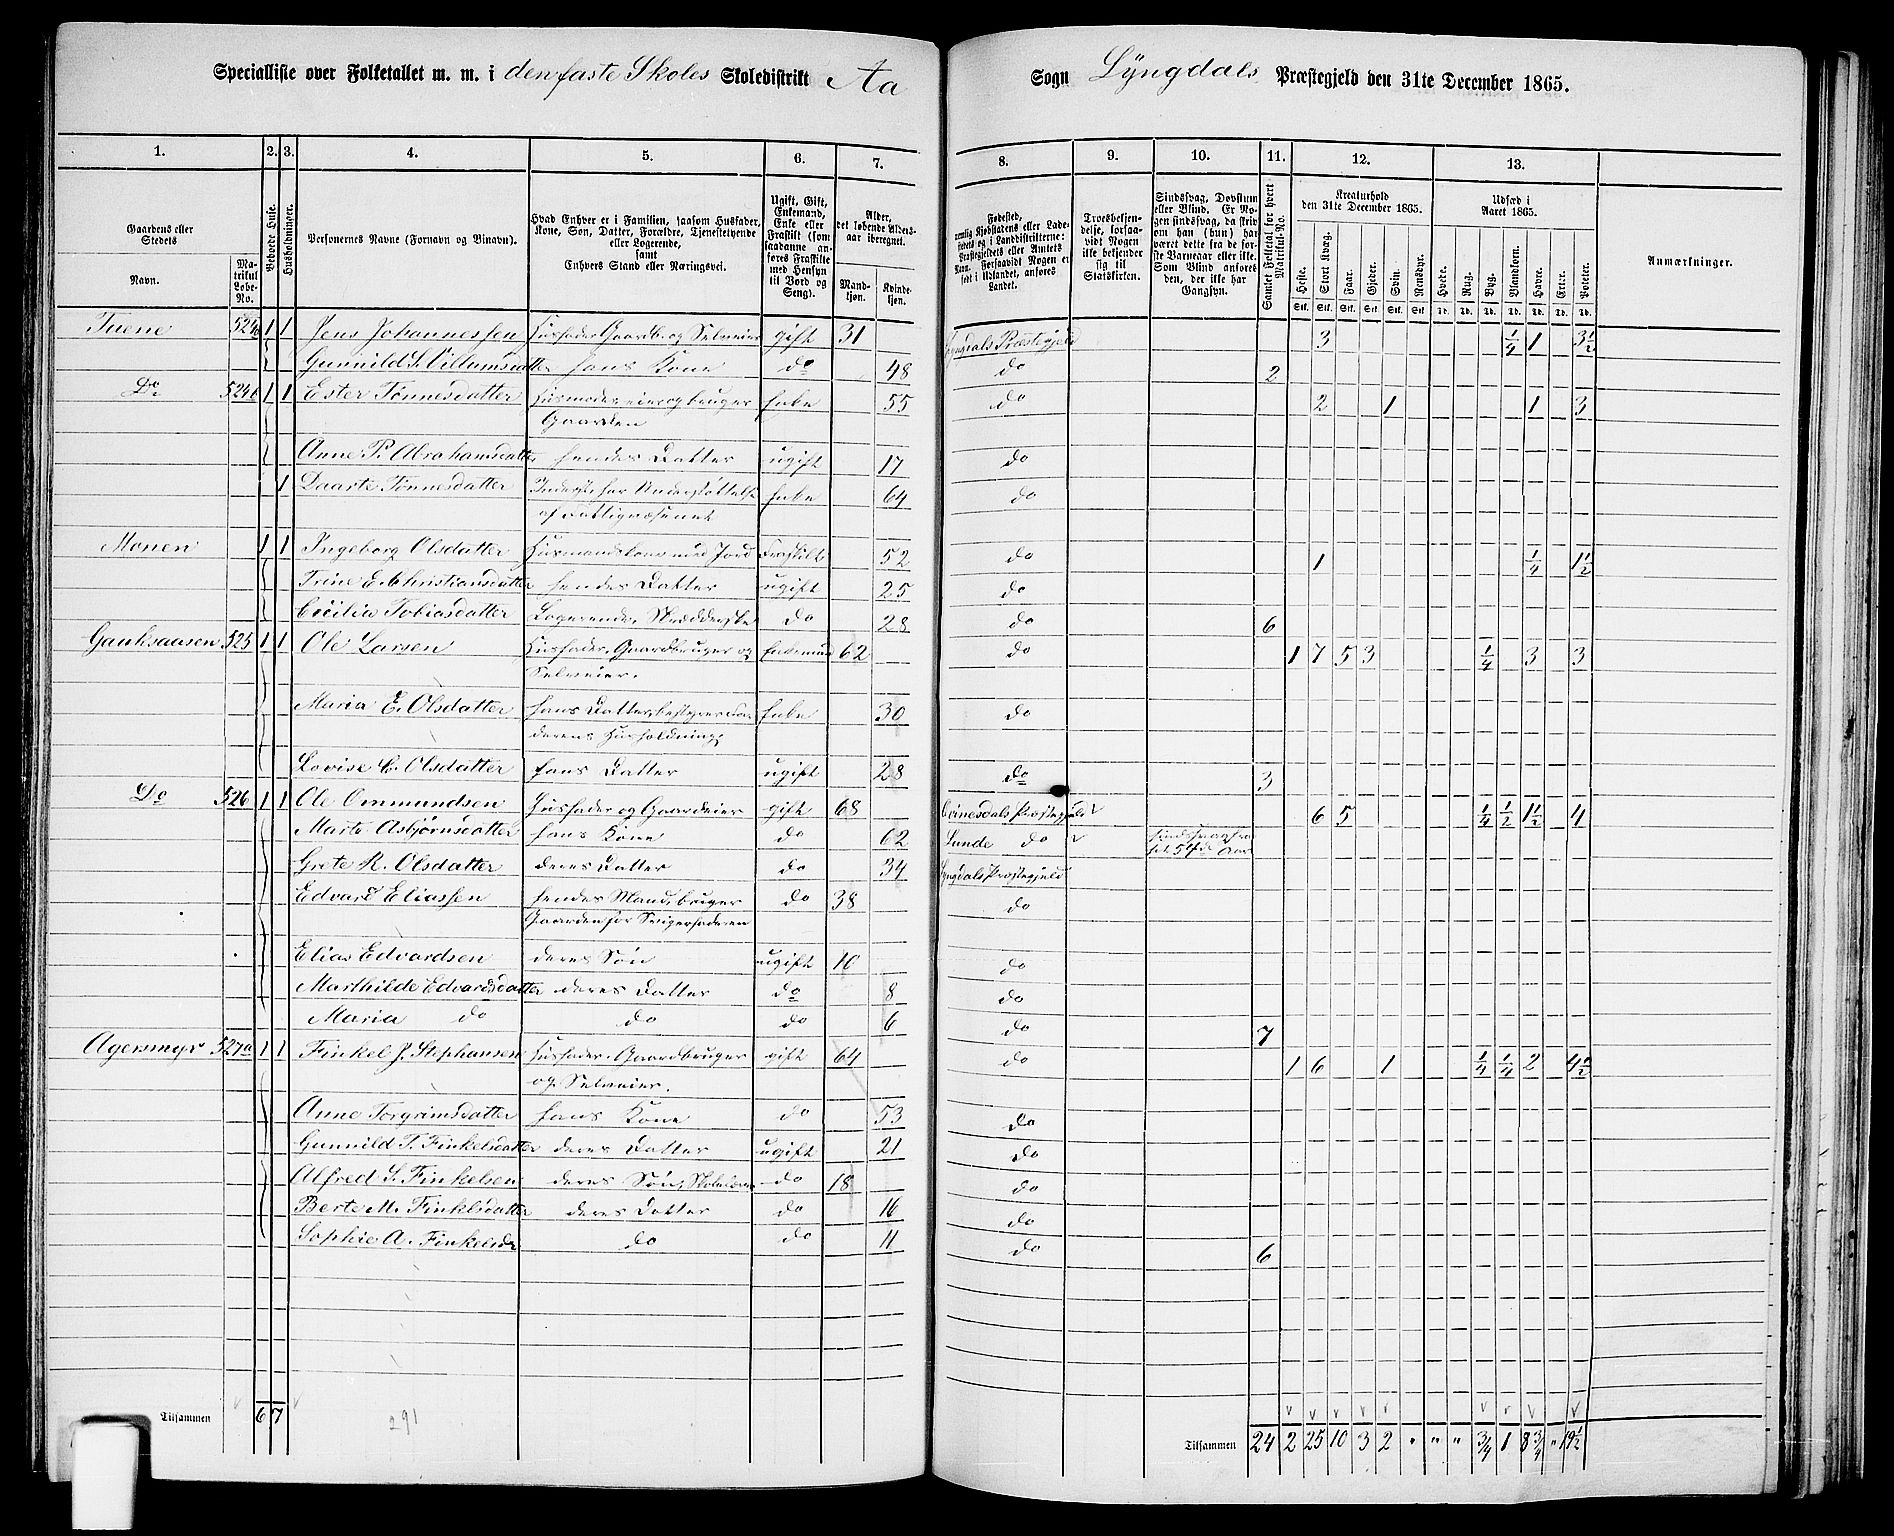 Specialliste over Folketallet m. m. i den faste Skoles Skoledistrikt Aa Sogn Lyngdals Præstegjeld den 31te December 1865.
1. 2. 3. 4. 5. 6. 7. 8. 9. 10. 11. 12. 13.
Gaardens eller Stedets
Navn.
Matrikul Løbe-No.
Beboede Huse.
Husholdninger.
Personernes Navne (Fornavn og Tilnavn).
Hvad Enhver er i Familien, saasom Husfader, Kone, Søn, Datter, Forældre, Tjenestetyende eller Logerende,
samt
Enhvers Stand eller Næringsvei.
Ugift, Gift, Enkemand, Enke eller Fraskilt (som saadanne anføres Fraskilte med Hensyn til Bord og Seng).
Alder, det løbende Aldersaar iberegnet.
Mandkjøn.
Kvindekjøn.
Fødested,
Troesbekjendelse, forsaavidt Nogen ikke bekjender sig til Statskirken.
Sindssvag, Døvstum eller Blind.
Samlet Folketal for hvert Matrikul-No.
Kreaturhold
den 31te December 1865.
Heste. Stort Kvæg. Faar. Gjeder. Svin. Rensdyr.
Udsæd i
Aaret 1865.
Hvede. Rug. Byg. Blandkorn. Havre. Erter. Poteter.
Anmærkninger.
Tuene 524a 1 1 Jens Johannessen Husfader, Gaardb. og Selveier gift 31 Lyngdals Præstegjeld 3 1/4 1 3 1/2
Gunnild S. Villumsdatter hans Kone do 48 do 2
Do 524b 1 1 Ester Tønnesdatter Husmoder, eier og bruger Enke 55 do 2 1 1 3
Gaarden
Anne P. Abrahamsdatter hendes Datter ugift 17 do
1 Daarte Tønnesdatter Inderst, har Understøttelse Enke 64 do
af Fattigvæsenet
Monen 1 1 Ingeborg Olsdatter Husmandskone med Jord Fraskilt 52 do 1 1/4 1 1/2
Trine E. Christiansdatter hendes Datter ugift 25 do
Cecilia Tobiasdatter Logerende, Skrædderske do 28 do 6
Gauksaasen 525 1 1 Ole Larsen Husfader, Gaardbruger og Enkemand 62 do 1 7 5 3 1/4 3 3
Selveier.
Maria E. Olsdatter hans Datter, bestyrer Fa- Enke 30 do
derens Husholdning
Lovise C. Olsdatter hans Datter ugift 28 do 3
Do 526 1 1 Ole Ommundsen Husfader og Gaardeier gift 68 Qvinesdals Præstegjeld 6 5 1/4 1/2 1 1/2 4
Marte Asbjørnsdatter hans Kone do 62 Lunde do
Grete R. Olsdatter deres Datter do 34 Lyngdals Præstegjeld
Edvard Eliassen hendes Mand, bruger do 38 do
Gaarden for Svigerfaderen
Elias Edvardsen deres Søn ugift 10 do
Marthilde Edvardsdatter deres Datter do 8 do
Maria do do do 6 do 7
Agersmyr 527a 1 1 Finkel J. Stephansen Husfader, Gaardbruger gift 64 do 1 6 1 1/4 1/4 2 4 1/2
og Selveier.
Anne Torgrimsdatter hans Kone do 53 do
Gunnild T. Finkelsdatter deres Datter ugift 21 do
Alfred S. Finkelsen deres Søn, do 18 do
Berte M. Finklsdatter deres Datter do 16 do
Sophie A. Finkelsdr do do 11 do 6
Tilsammen 6 7 291
Tilsammen 24 2 25 10 3 2 " " " 3/4 1 8 3/4 " 19 1/2